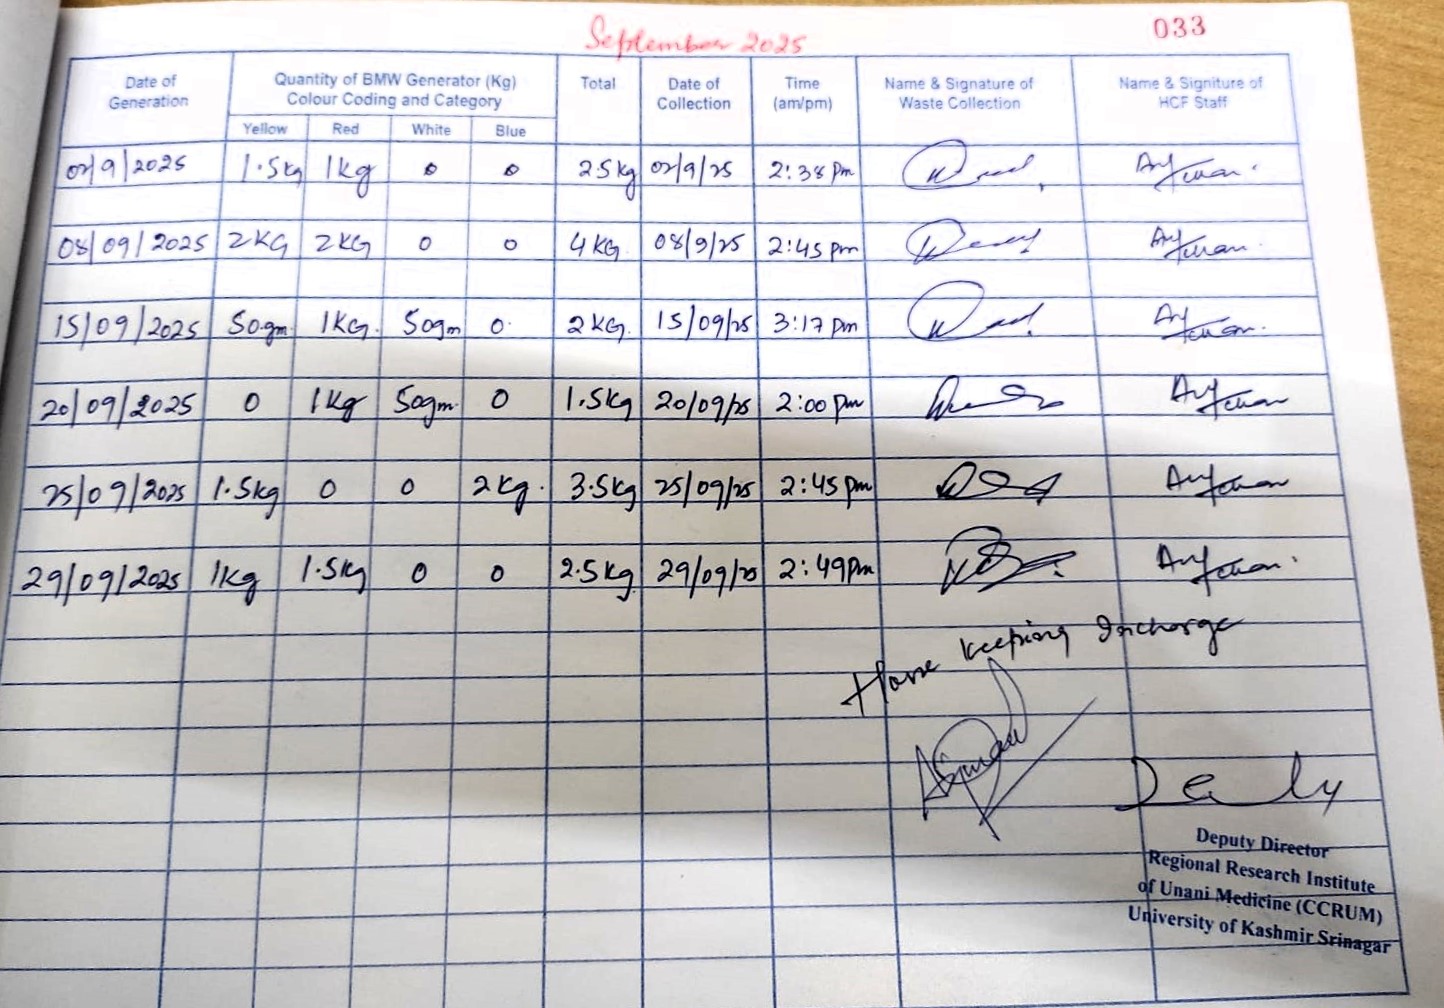 September 2025
033
Date of Generation | Quantity of BMW Generator (Kg) Colour Coding and Category | Total | Date of Collection | Time (am/pm) | Name & Signature of Waste Collection | Name & Signiture of HCF Staff
Yellow | Red | White | Blue
02/9/2025 | 1.5kg | 1kg | 0 | 0 | 2.5kg | 02/9/25 | 2:38 pm
08/09/2025 | 2KG | 2KG | 0 | 0 | 4KG. | 08/9/25 | 2:45 pm
15/09/2025 | 50gm. | 1KG. | 50gm | 0. | 2KG. | 15/09/25 | 3:17 pm
20/09/2025 | 0 | 1kg | 50gm. | 0 | 1.5kg | 20/09/25 | 2:00 pm
25/09/2025 | 1.5kg | 0 | 0 | 2kg. | 3.5kg | 25/09/25 | 2:45 pm
29/09/2025 | 1kg | 1.5kg | 0 | 0 | 2.5kg | 29/09/25 | 2:49pm
House Keeping Incharge
Deputy Director
Regional Research Institute
of Unani Medicine (CCRUM)
University of Kashmir Srinagar